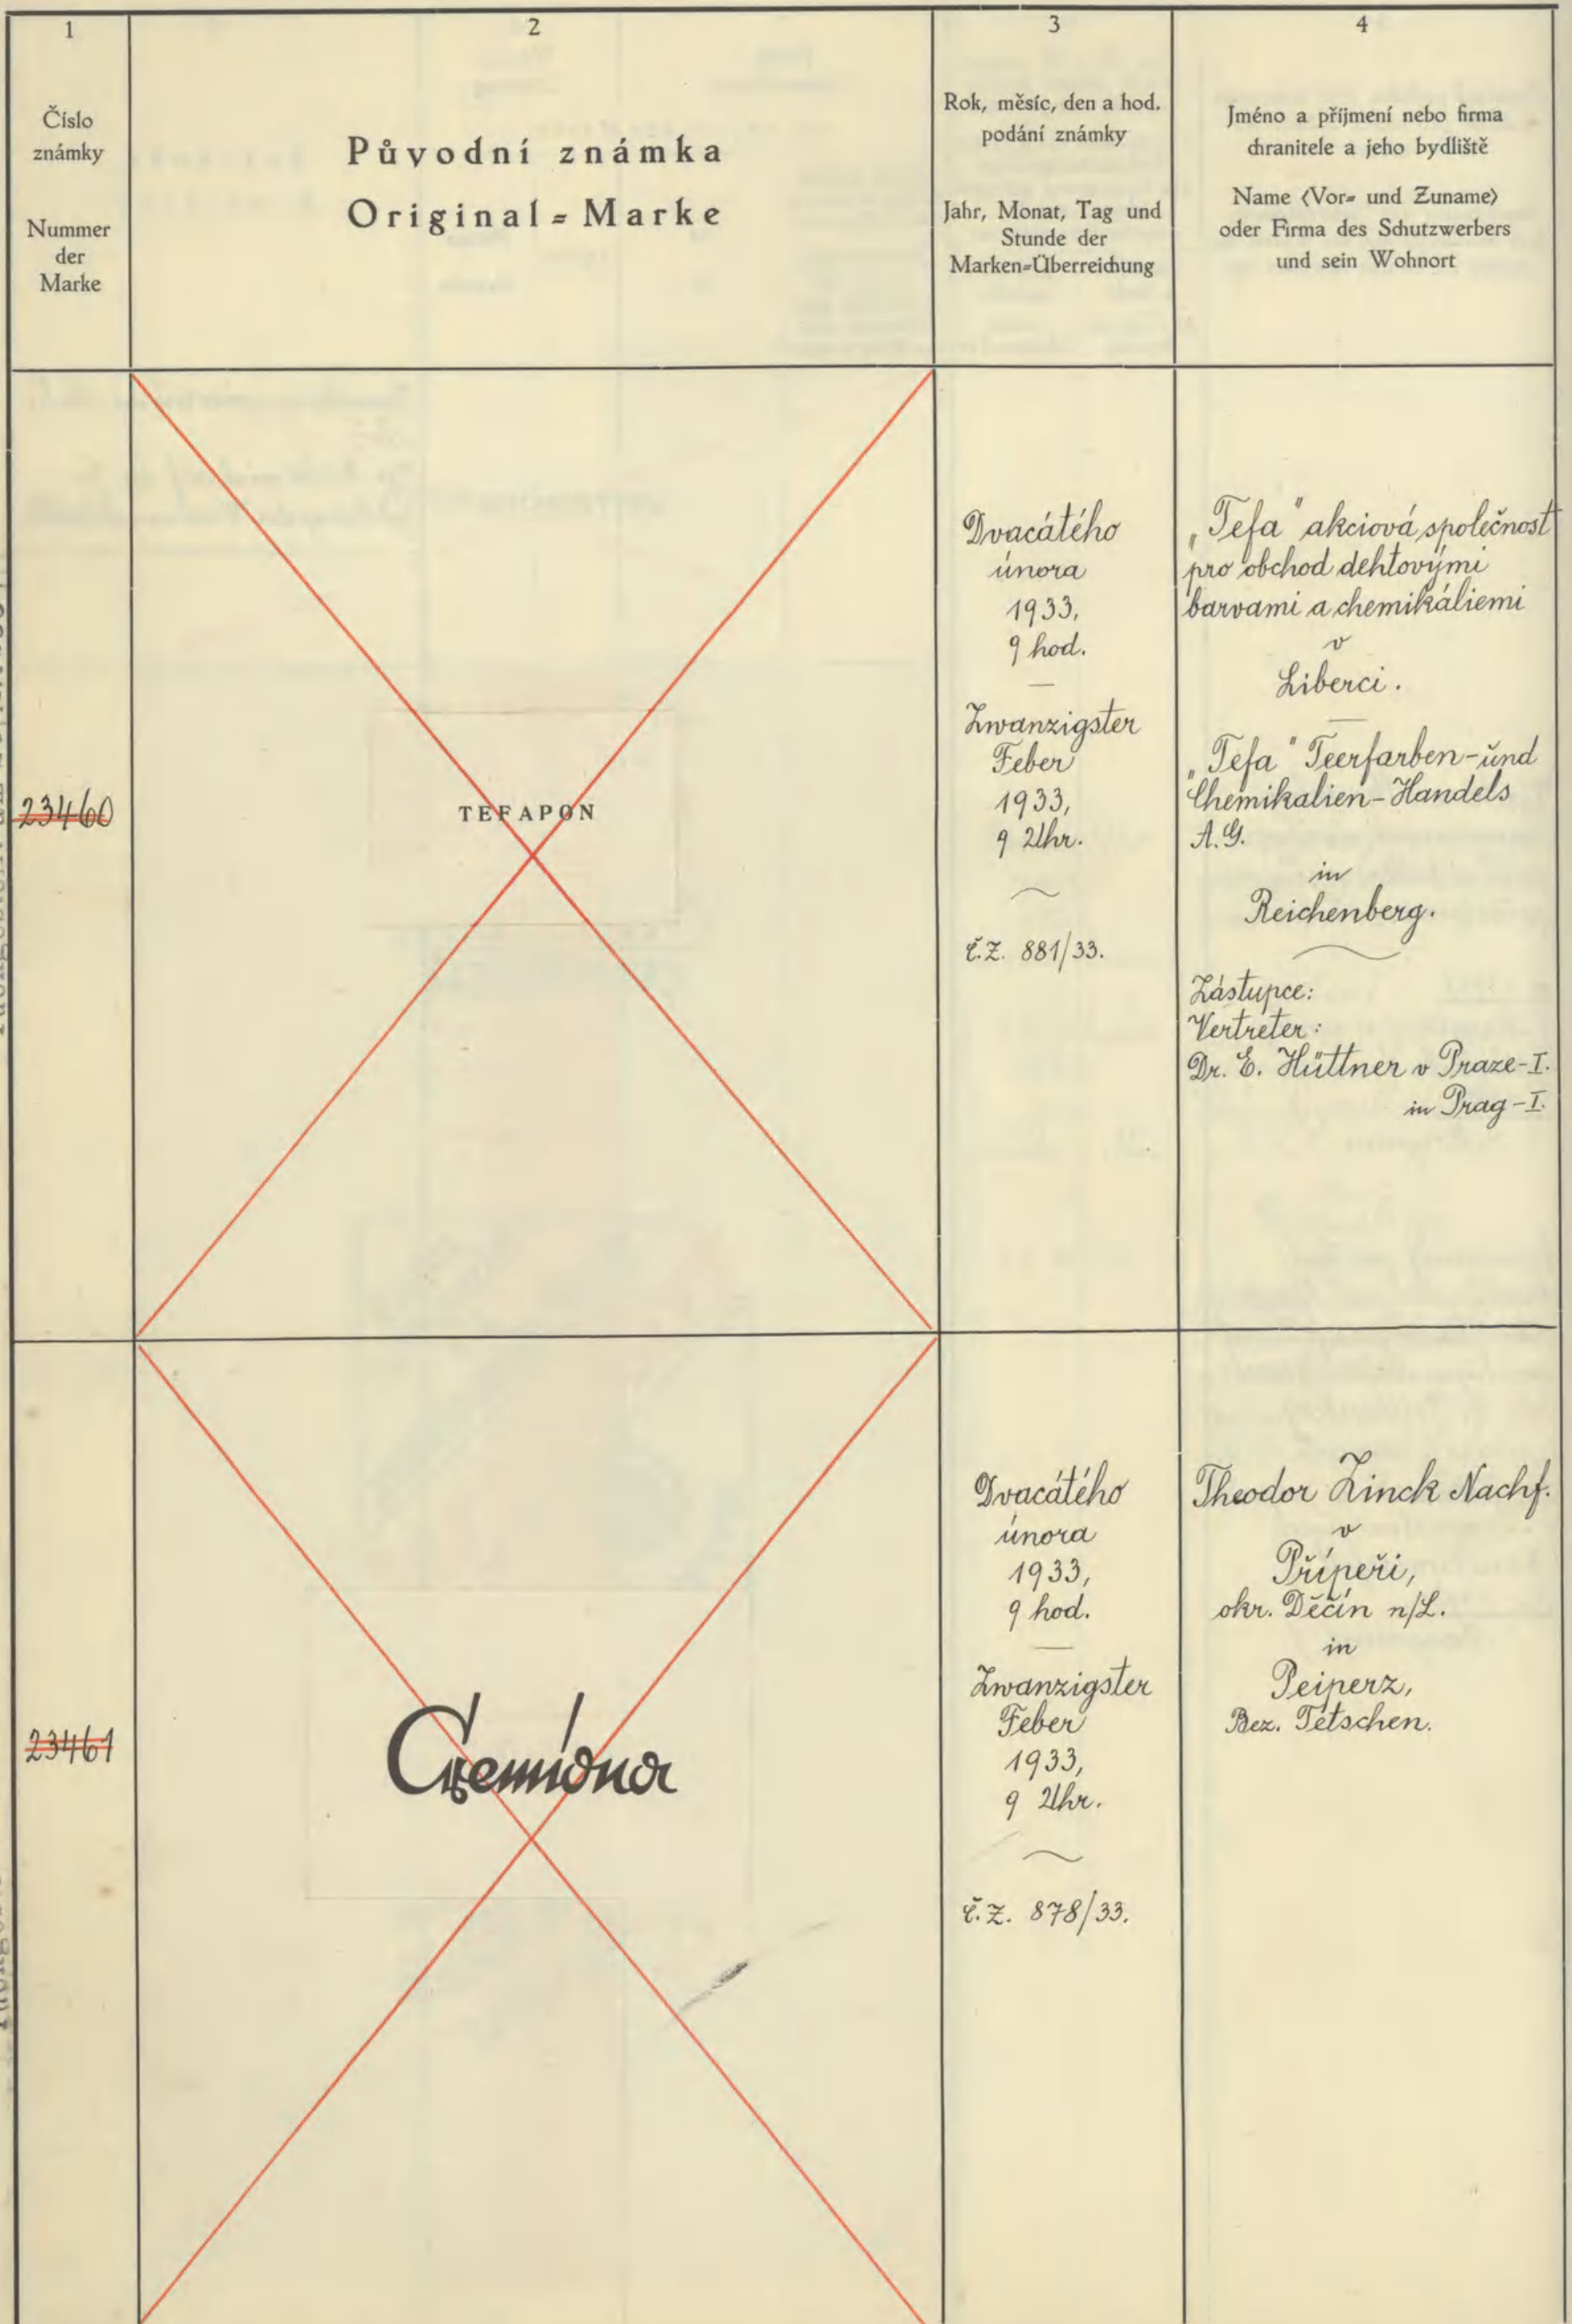 1
Číslo
známky
Nummer
der
Marke
2
Původní známka
Original=Marke
3
Rok, měsíc, den a hod.
podání známky
Jahr, Monat, Tag und
Stunde der
Marken=Überreichung
4
Jméno a příjmení nebo firma
chranitele a jeho bydliště
Name (Vor= und Zuname)
oder Firma des Schutzwerbers
und sein Wohnort
23460
TEFAPON
Dvacátého
února
1933,
9 hod.
Zwanzigster
Feber
1933,
9 Uhr.
č.Z. 881/33.
„Tefa" akciová společnost
pro obchod dehtovými
barvami a chemikáliemi
v
Liberci.
„Tefa" Teerfarben-und
Chemikalien-Handels
A.G.
in
Reichenberg.
Zástupce:
Vertreter:
Dr. E. Hüttner v Praze-I.
in Prag-I.
23461
Cremidna
Dvacátého
února
1933,
9 hod.
Zwanzigster
Feber
1933,
9 Uhr.
č.Z. 878/33.
Theodor Zinck Nachf.
v
Přípeři,
okr. Děčín n/L.
in
Peiperz,
Bez. Tetschen.